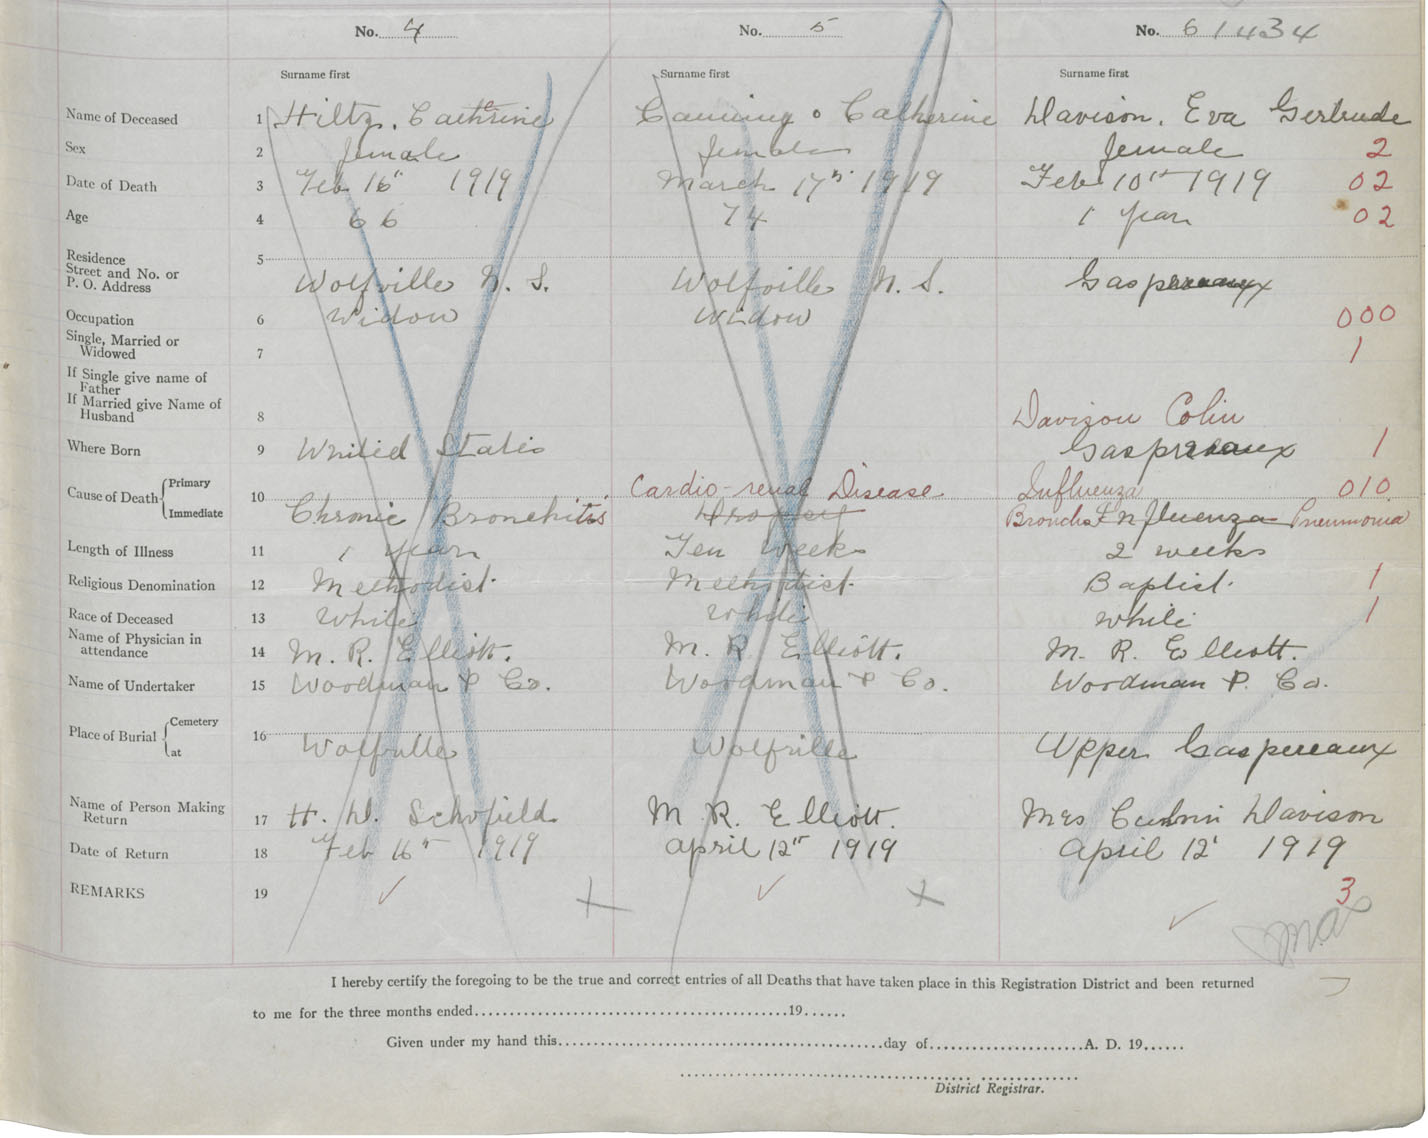 No. 4 No. 5 No. 6 1434
Surname first Surname first Surname first
Name of Deceased 1 Hiltz, Cathrine Canning Catherine Davison, Eva Gertrude
Sex 2 female female female 2
Date of Death 3 Feb 16th 1919 March 17th 1919 Feb 10th 1919 02
Age 4 66 74 1 year 02
Residence
Street and No. or
P. O. Address 5 Wolfville N. S. Wolfville N. S. Gaspereaux
Occupation 6 Widow Widow 000
Single, Married or
Widowed 7 1
If Single give name of
Father
If Married give Name of
Husband 8 Davison Colin
Where Born 9 United States Gaspereaux 1
Cause of Death Primary 10 Cardio-renal Disease Influenza 010
Immediate Chronic Bronchitis Dropsy Broncho Influenza Pneumonia
Length of Illness 11 1 year Ten weeks 2 weeks
Religious Denomination 12 Methodist. Methodist. Baptist. 1
Race of Deceased 13 White White White 1
Name of Physician in
attendance 14 M. R. Elliott. M. R. Elliott. M. R. Elliott.
Name of Undertaker 15 Woodman & Co. Woodman & Co. Woodman & Co.
Place of Burial Cemetery
at 16 Wolfville Wolfville Upper Gaspereaux
Name of Person Making
Return 17 H. W. Schofield M. R. Elliott. Mrs Davison
Date of Return 18 Feb 16th 1919 April 12th 1919 April 12th 1919
REMARKS 19 3
I hereby certify the foregoing to be the true and correct entries of all Deaths that have taken place in this Registration District and been returned
to me for the three months ended........19......
Given under my hand this........day of........A. D. 19......
District Registrar.